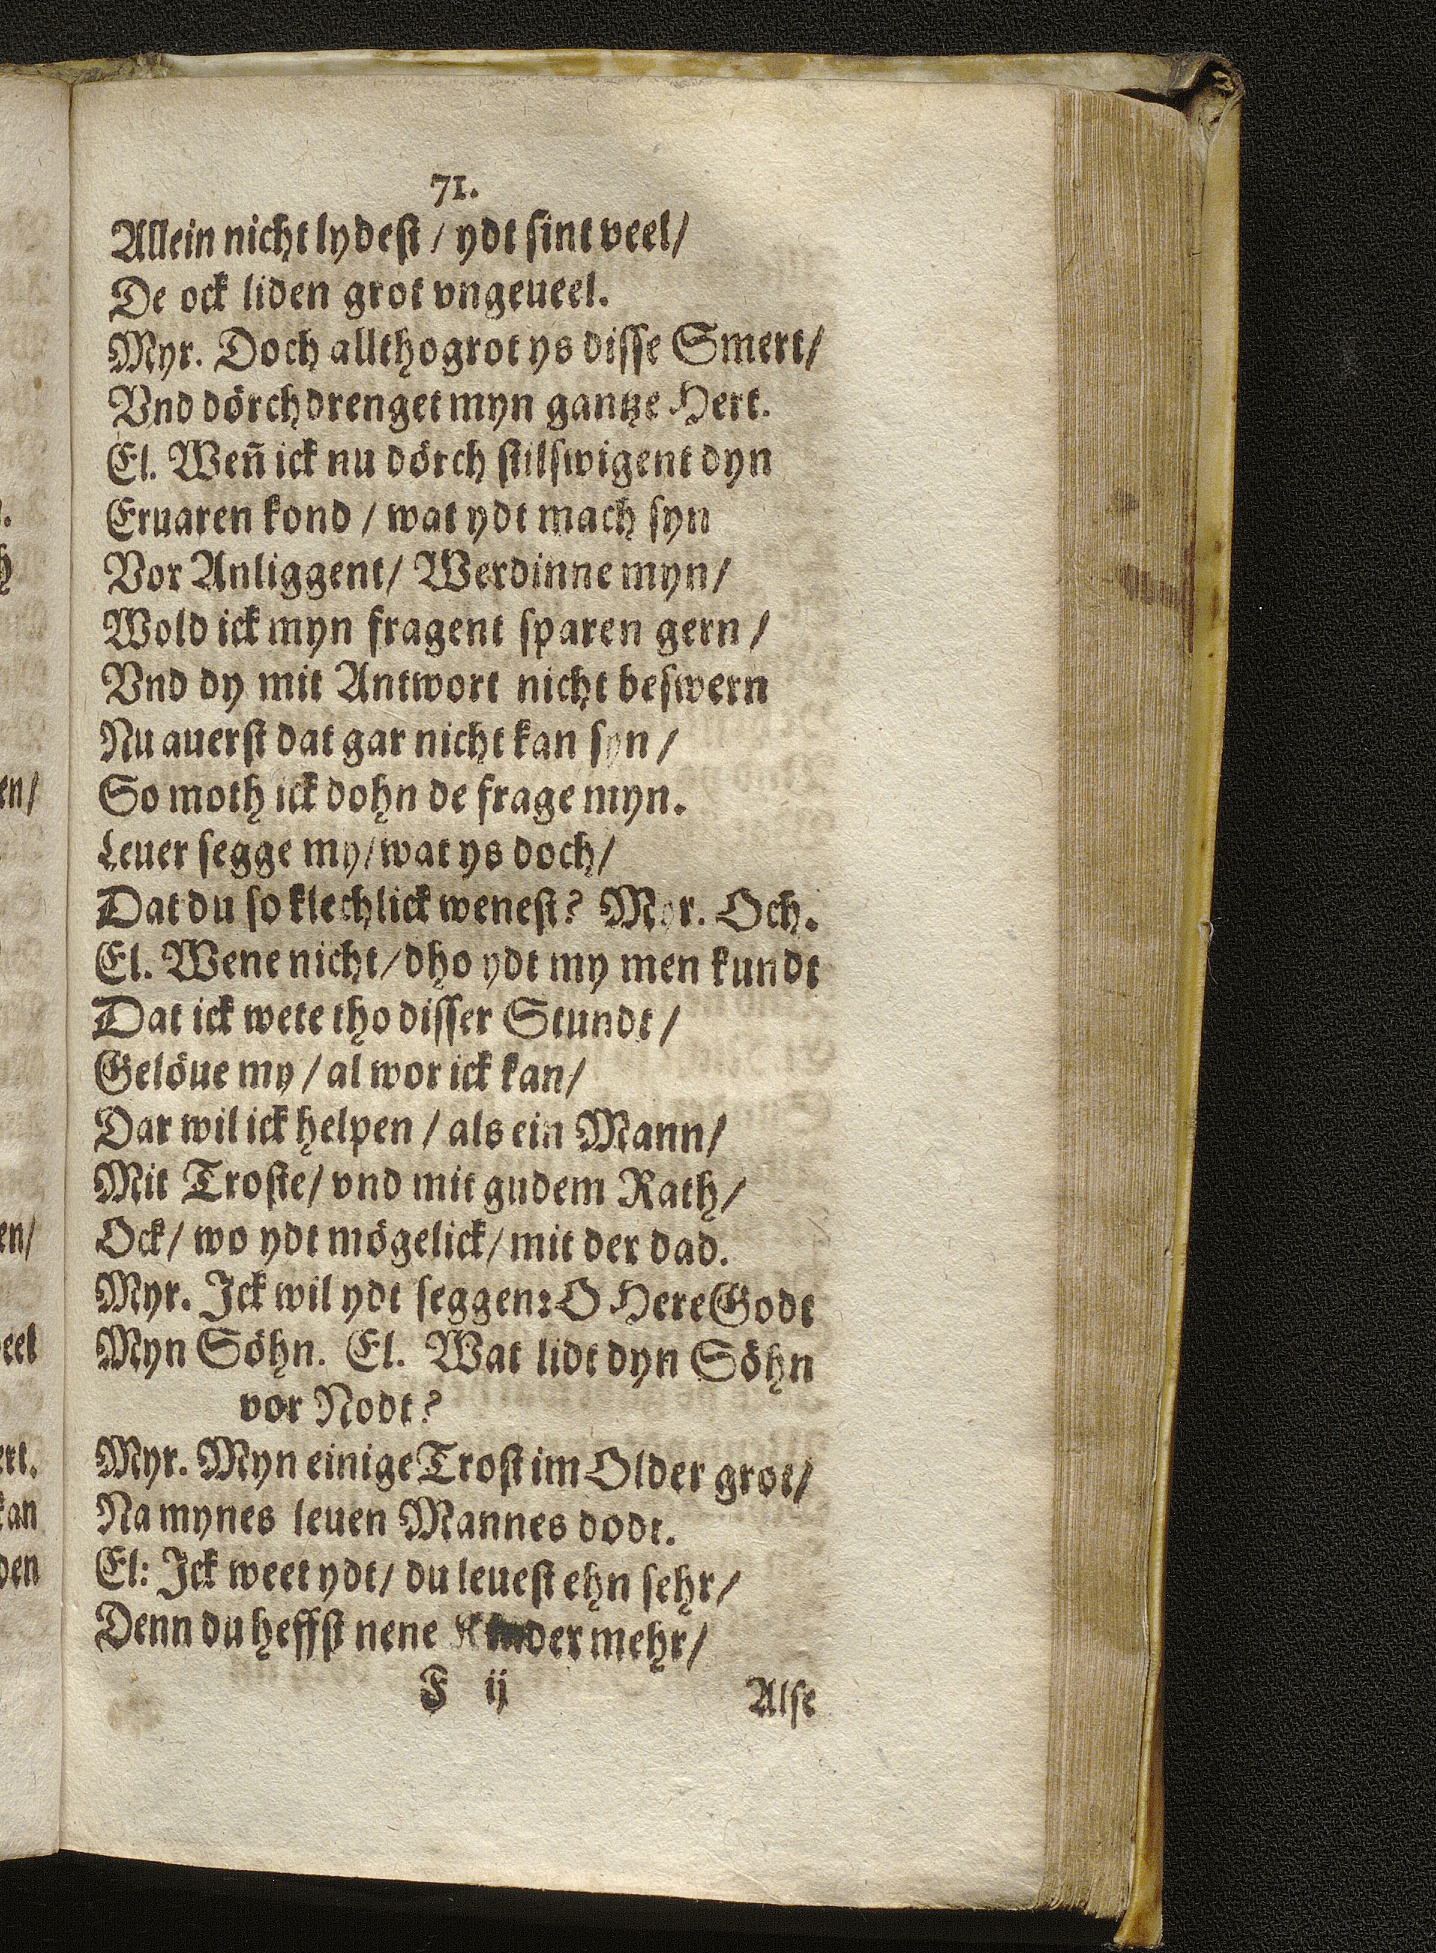 71.
Allein nicht lydeſt / ydt ſint veel/
De ock liden grot vngeueel.
Myr. Doch allthogrot ys diſſe Smert/
Vnd dörchdrenget myn gantze Hert.
El. Weñ ick nu dörch ſtilſwigent dyn
Eruaren kond / wat ydt mach ſyn
Vor Anliggent/ Werdinne myn/
Wold ick myn fragent ſparen gern /
Vnd dy mit Antwort nicht beſwern
Nu auerſt dat gar nicht kan ſyn /
So moth ick dohn de frage myn.
Leuer ſegge my/wat ys doch/
Dat du ſo klechlick weneſt? Myr. Och.
El. Wene nicht/dho ydt my men kundt
Dat ick wete tho diſſer Stundt /
Gelöue my / al wor ick kan/
Dar wil ick helpen / als ein Mann/
Mit Troſte/ vnd mit gudem Rath/
Ock/ wo ydt mögelick/mit der dad.
Myr. Ick wil ydt ſeggen: O Here Godt
Myn Söhn. El. Wat lidt dyn Söhn
vor Nodt?
Myr. Myn einige Troſt im Older grot/
Na mynes leuen Mannes dodt.
El: Ick weet ydt/ du leueſt ehn ſehr/
Denn du heffſt nene Kinder mehr/
F ij Alſe
en/
en/
eel
ert.
kan
den